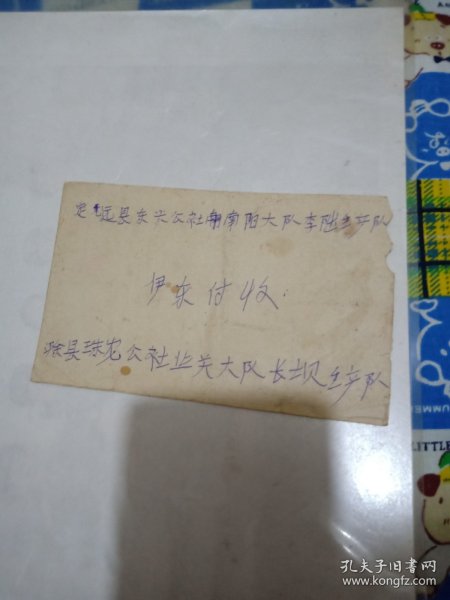 定远县东兴公社南阳大队李 生产队
伊东付收.
滁县珠龙公社北关大队长坝生产队
UMME
LITTLE
孔夫子旧书网
www.kongfz.com